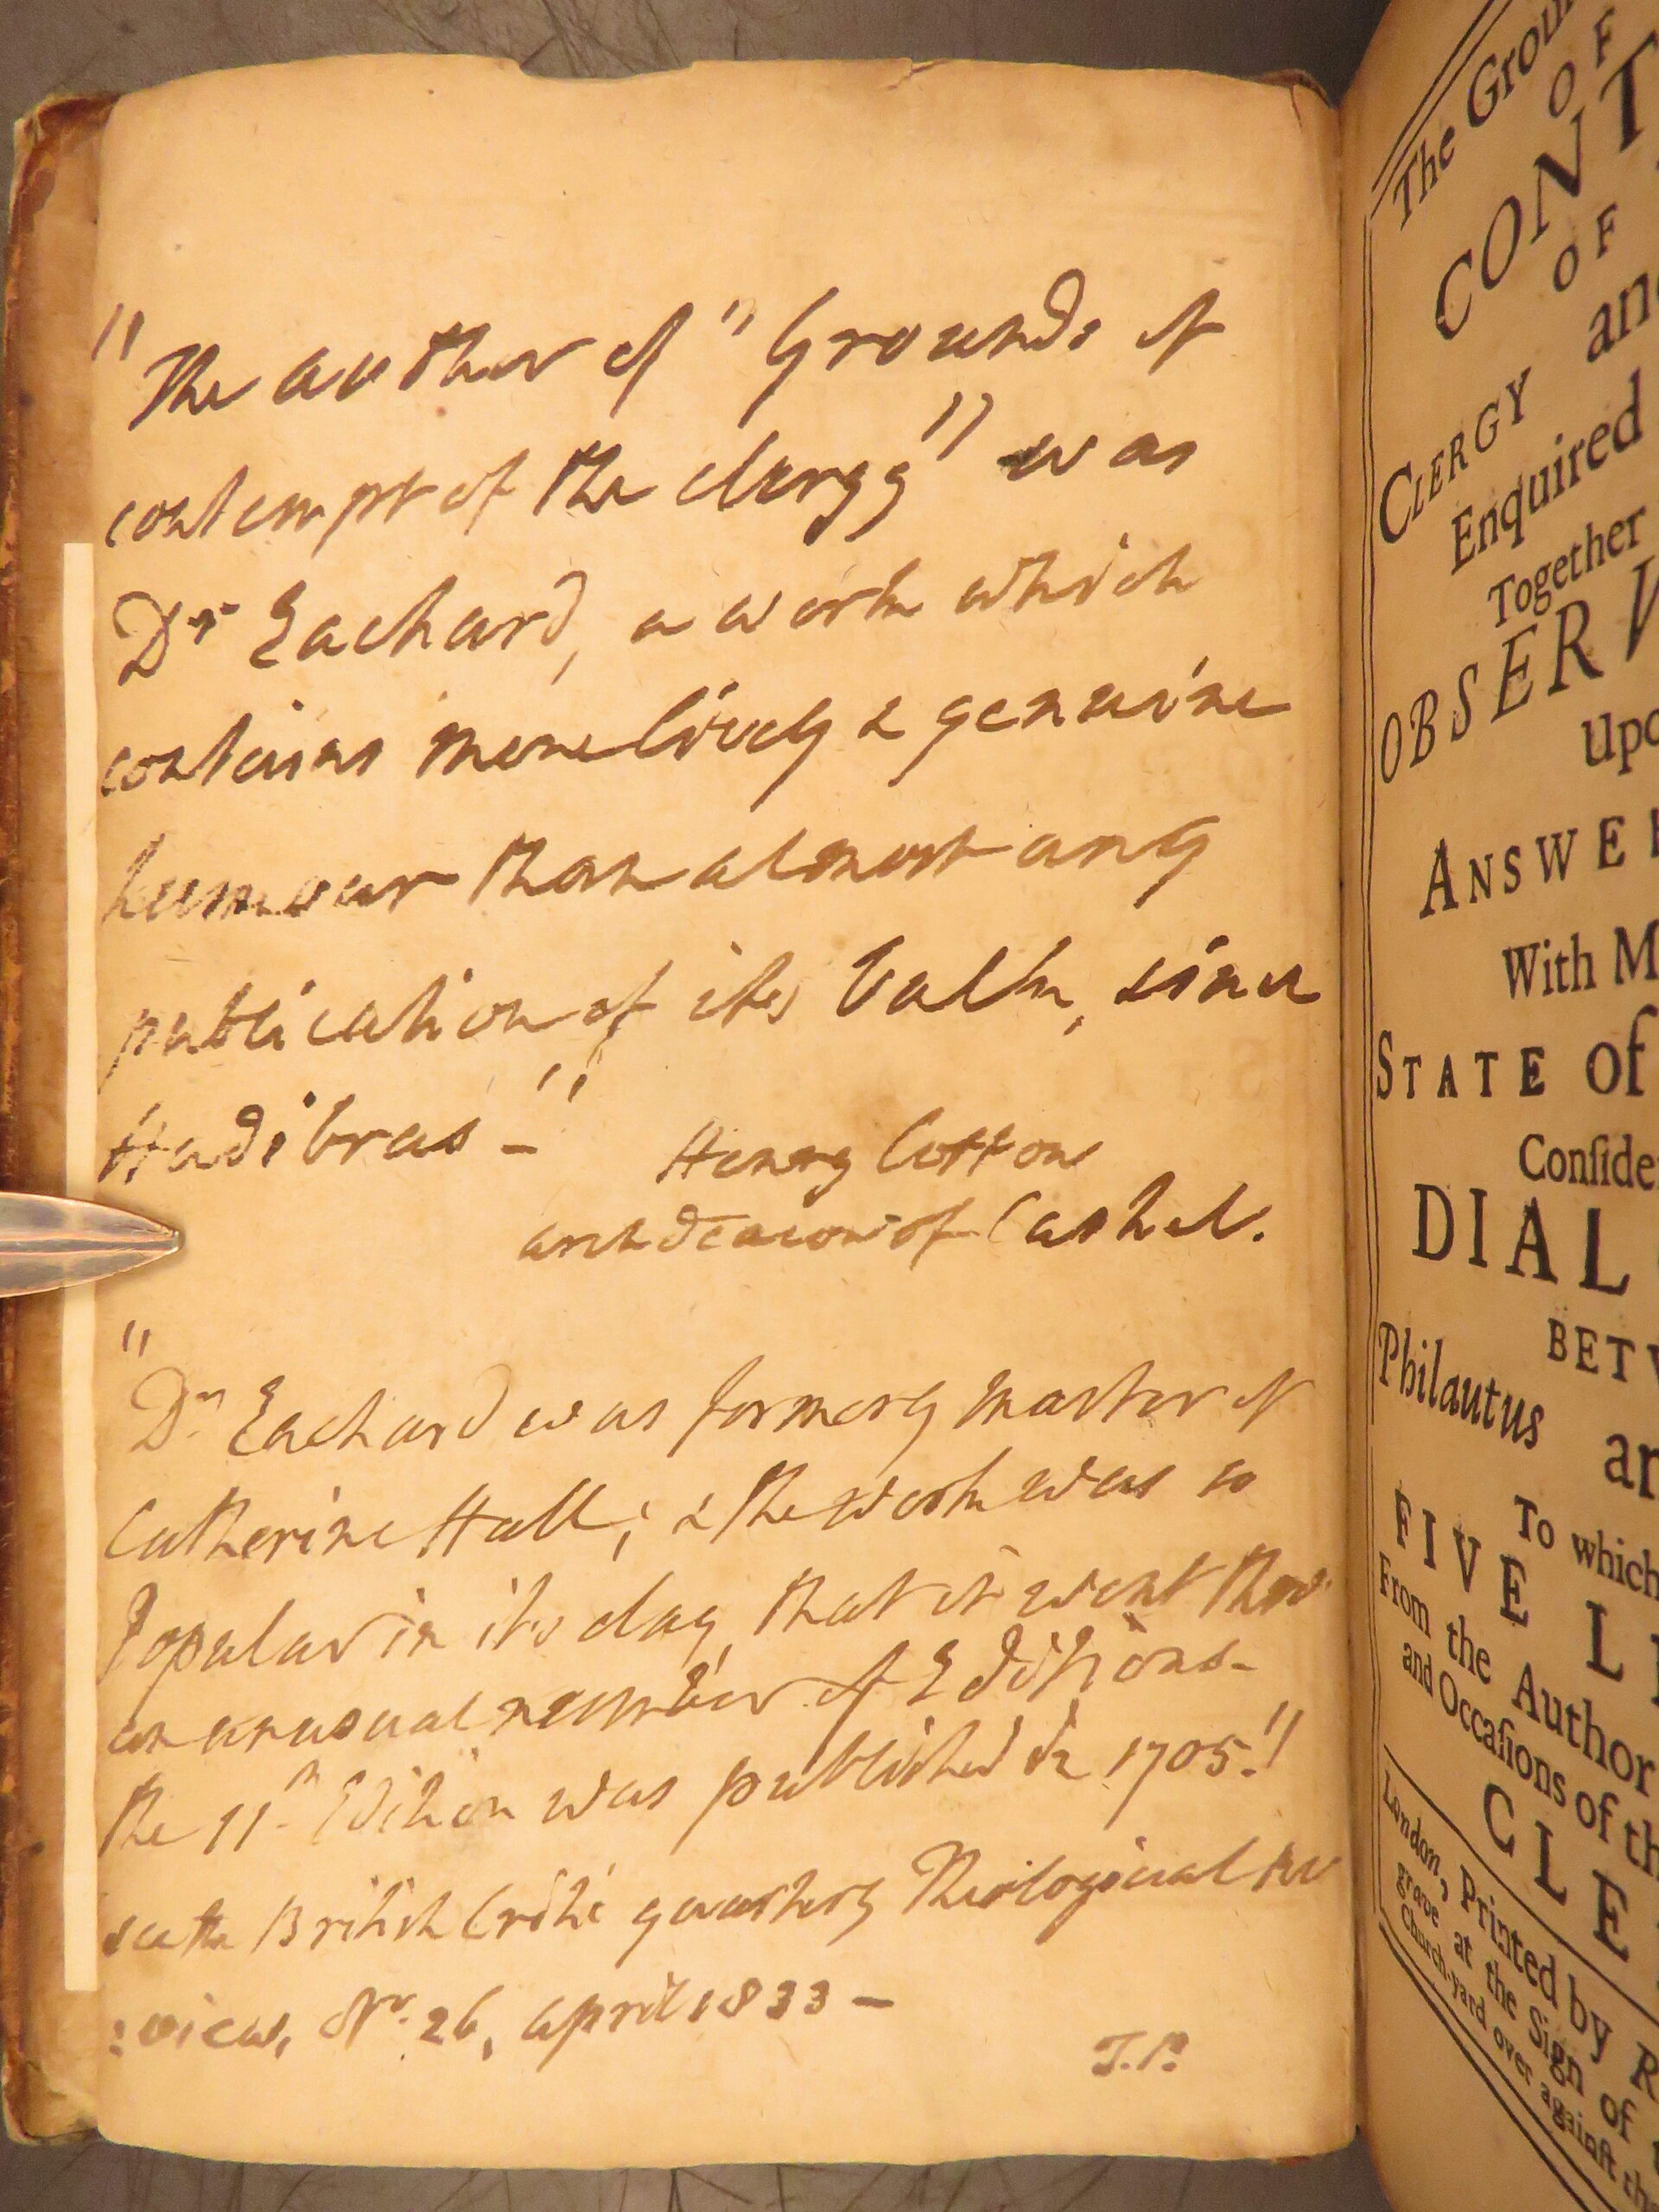 "The author of "Grounds of
contempt of the clergy" was
Dr Eachard, a work which
contains more lively & genuine
humour than almost any
publication of its bulk, since
Hudibras - "
Henry Cotton
archdeacon of Cashel.
"Dr Eachard was formerly master of
Catherine Hall; & the work was so
Popular in its day, that it went thro'
an unusual number of Editions-
the 11th Edition was published in 1705."
see the British Critic quarterly Theological Re
:view, No. 26, april 1833 -
J.P.
The Groun
OF
CONT
OF
CLERGY an
Enquired
Together
OBSERV
Upo
ANSWE
With M
STATE of
Confide
DIAL
BET
Philautus an
To which
FIVE L
From the Author
and Occasions of th
CLE
London, Printed by R
grave at the Sign of
Church-yard over against the